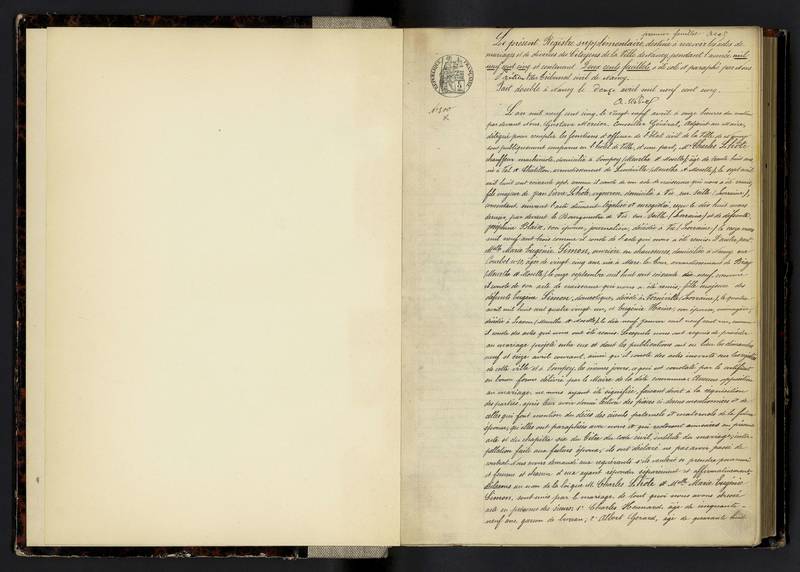 premier feuillet
Le présent Registre supplémentaire, destiné à recevoir les actes de
mariages et de divorces des Citoyens de la Ville de Nancy, pendant l'année mil
neuf cent cinq et contenant Deux cents feuillets a été coté et paraphé par Nous
Tribunal civil de Nancy.
Fait double à Nancy le Douze avril mil neuf cent cinq.
RÉPUBLIQUE FRANÇAISE
L'an mil neuf cent cinq, le vingt neuf avril à onze heures du matin
par devant Nous, Gustave Conseiller Général, Adjoint au Maire,
délégué pour remplir les fonctions d'officier de l'état civil de la Ville de Nancy
sont publiquement comparus en l'hôtel de Ville, d'une part, Mr Charles Lhôte
chauffeur machiniste, domicilié à Pompey (Meurthe et Moselle), âgé de trente huit ans
né à Val et Châtillon, arrondissement de Lunéville (Meurthe et Moselle), le sept avril
mil huit cent soixante sept, comme il conste de son acte de naissance qui nous a été remis,
fils majeur de Jean Lhôte, vigneron, domicilié à Vic sur Seille (Lorraine),
consentant suivant l'acte dûment légalisé et enregistré, reçu le dix huit mars
dernier, par devant le Bourgmestre de Vic sur Seille (Lorraine) et de défunte
Joséphine Blaise, son épouse, journalière, décédée à Vic (Lorraine), le
mil neuf cent trois comme il conste de l'acte qui nous a été remis. D'autre part,
Melle Marie Eugénie Simon, ouvrière en chaussures, domiciliée à Nancy rue
Courbet âgée de vingt cinq ans, née à Mars la Tour arrondissement de Briey
(Meurthe et Moselle), le onze septembre mil huit cent soixante dix neuf, comme
il conste de son acte de naissance qui nous a été remis, fille majeure des
défunts Eugène Simon, domestique, décédé à (Lorraine), le quatre
avril mil huit cent quatre vingt un, et Eugénie son épouse,
décédée à (Meurthe et Moselle), le dix neuf janvier mil neuf cent un, comme
il conste des actes qui nous ont été remis. Lesquels nous ont requis de procéder
au mariage projeté entre eux et dont les publications ont eu lieu les dimanches
neuf et seize avril courant, ainsi qu'il conste des actes inscrits sur les registres
de cette ville et à Pompey, les mêmes jours, ce qui est constaté par le certificat
en bonne forme délivré par le Maire de la dite commune. Aucune opposition
au mariage ne nous ayant été signifiée, faisant droit à la réquisition
des parties, après leur avoir donné lecture des pièces ci dessus mentionnées et de
celles qui font mention du décès des aïeuls paternels et maternels de la future
épouse, qu'elles ont paraphées avec nous et qui restent annexées au présent
acte et du chapitre six du titre du code civil, intitulé du mariage; inter-
pellation faite aux futurs époux, ils ont déclaré ne pas avoir passé de
contrat. Nous avons demandé aux requérants s'ils veulent se prendre pour mari
et femme et chacun d'eux ayant répondu séparément et affirmativement,
déclarons au nom de la loi que M. Charles Lhôte et Melle Marie Eugénie
Simon, sont unis par le mariage, de tout quoi nous avons dressé
acte en présence des sieurs 1° Charles âgé de cinquante-
neuf ans, garçon de bureau; 2° Albert Gérard, âgé de quarante huit